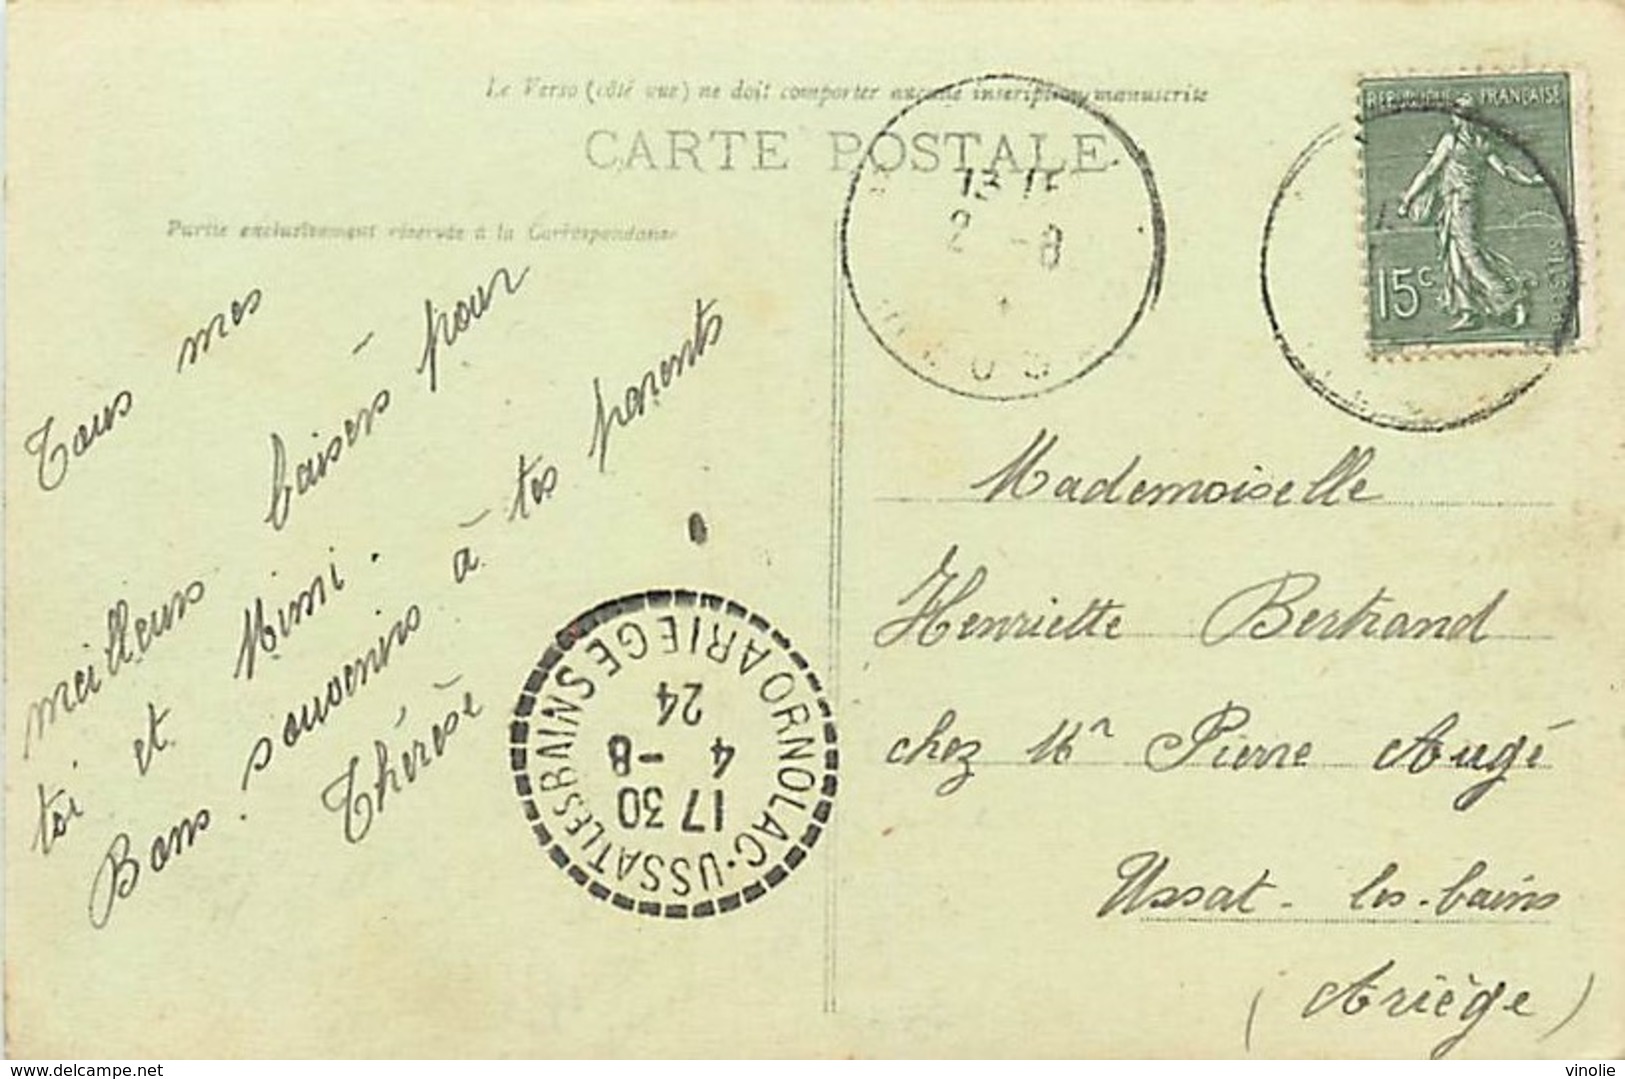 Le Verso (côté vue) ne doit comporter aucune inscription manuscrite
CARTE POSTALE
Partie exclusivement réservée à la Correspondance
RÉPUBLIQUE FRANÇAISE
15c
13 15
2 -8
Tous mes
meilleurs baisers pour
toi et Mimi.
Bons souvenirs à tes parents
Thérèse
ORNOLAC-USSAT LES BAINS
ARIEGE
17 30
4 -8
24
Mademoiselle
Henriette Bertrand
chez Mr Pierre Augé
Ussat-les-bains
(Ariège)
delcampe.net
vinolie